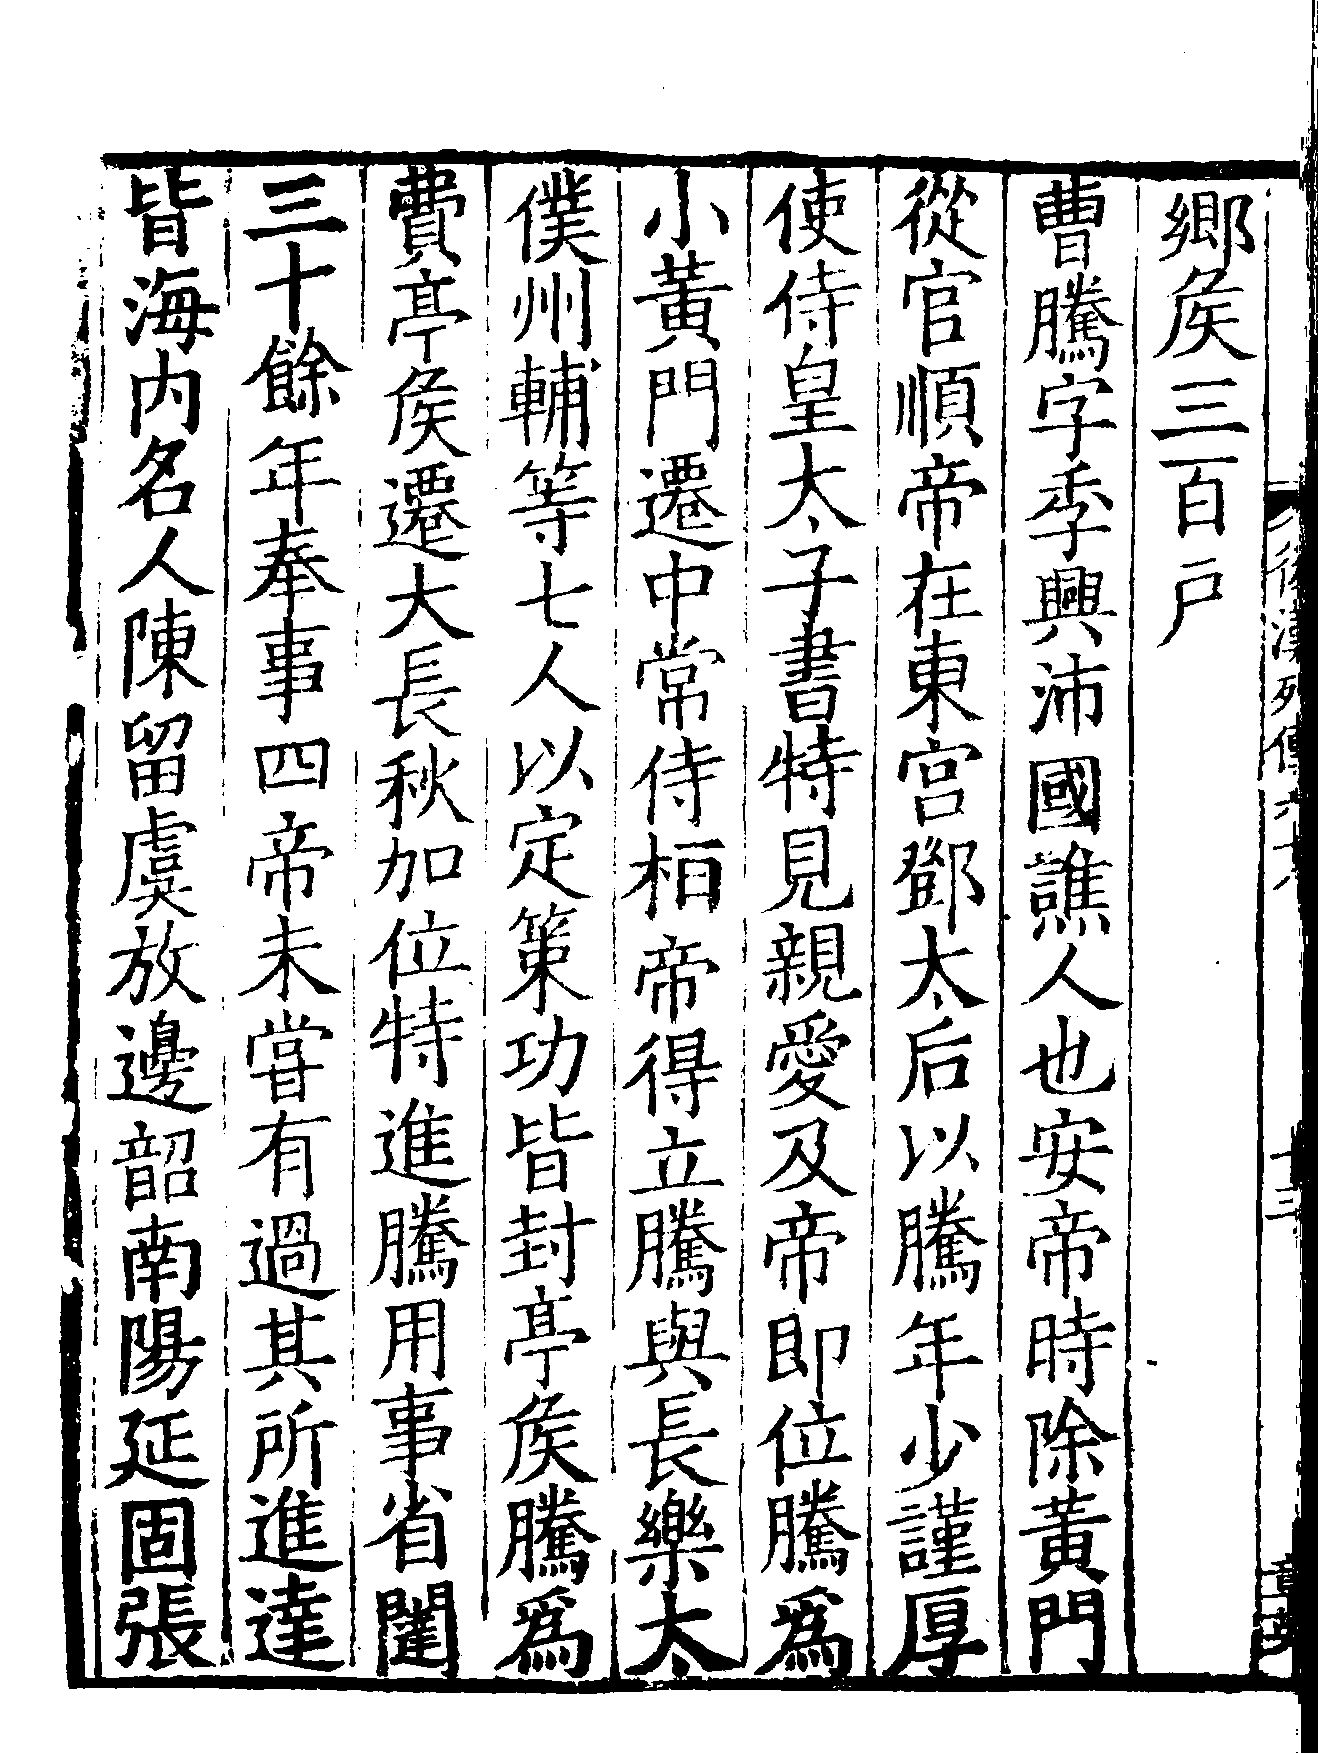 鄉侯三百戶
曹騰字季興沛國譙人也安帝時除黃門
從官順帝在東宮鄧太后以騰年少謹厚
使侍皇太子書特見親愛及帝即位騰爲
小黃門遷中常侍桓帝得立騰與長樂太
僕州輔等七人以定策功皆封亭侯騰爲
費亭侯遷大長秋加位特進騰用事省闥
三十餘年奉事四帝未嘗有過其所進達
皆海內名人陳留虞放邊韶南陽延固張
後漢列傳六十八
十三